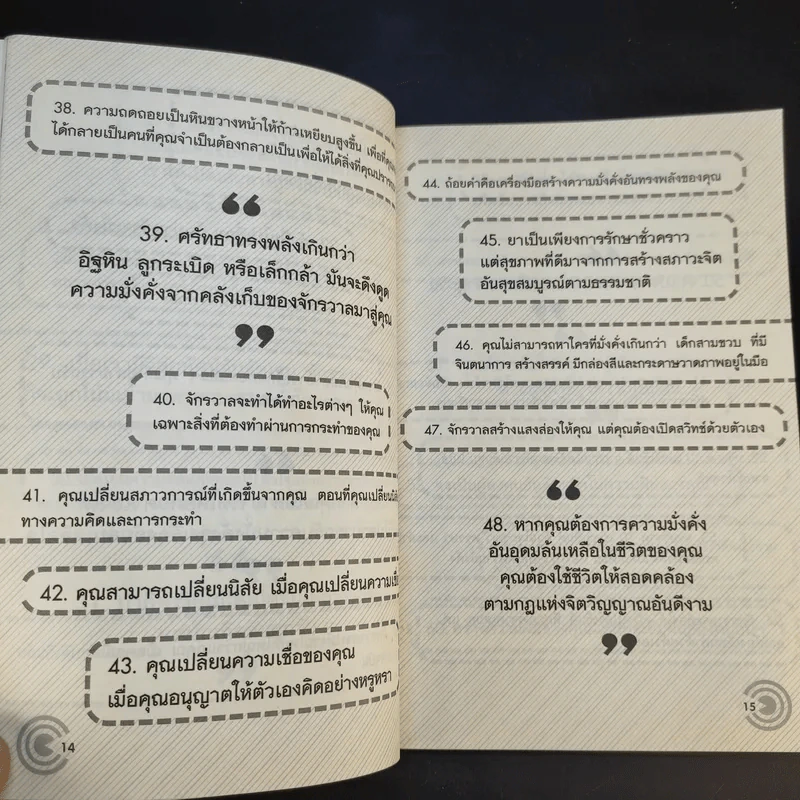 38. ความถดถอยเป็นหินขวางหน้าให้ก้าวเหยียบสูงขึ้น เพื่อที่คุณ
ได้กลายเป็นคนที่คุณจำเป็นต้องกลายเป็นเพื่อให้ได้สิ่งที่คุณปรารถนา
“
39. ศรัทธาทรงพลังเกินกว่า
อิฐหิน ลูกระเบิด หรือเล็กกล้า มันจะดึงดูด
ความมั่งคั่งจากคลังเก็บของจักรวาลมาสู่คุณ
”
40. จักรวาลจะทำได้ทำอะไรต่างๆ ให้คุณ
เฉพาะสิ่งที่ต้องทำผ่านการกระทำของคุณ
41. คุณเปลี่ยนสภาวการณ์ที่เกิดขึ้นจากคุณ ตอนที่คุณเปลี่ยน
ทางความคิดและการกระทำ
42. คุณสามารถเปลี่ยนนิสัย เมื่อคุณเปลี่ยนความ
43. คุณเปลี่ยนความเชื่อของคุณ
เมื่อคุณอนุญาตให้ตัวเองคิดอย่างหรูหรา
14
44. ถ้อยคำคือเครื่องมือสร้างความมั่งคั่งอันทรงพลังของคุณ
45. ยาเป็นเพียงการรักษาชั่วคราว
แต่สุขภาพที่ดีมาจากการสร้างสภาวะจิต
อันสุขสมบูรณ์ตามธรรมชาติ
46. คุณไม่สามารถหาใครที่มั่งคั่งเกินกว่า เด็กสามขวบ ที่มี
จินตนาการ สร้างสรรค์ มีกล่องสีและกระดาษวาดภาพอยู่ในมือ
47. จักรวาลสร้างแสงส่องให้คุณ แต่คุณต้องเปิดสวิทช์ด้วยตัวเอง
“
48. หากคุณต้องการความมั่งคั่ง
อันอุดมล้นเหลือในชีวิตของคุณ
คุณต้องใช้ชีวิตให้สอดคล้อง
ตามกฎแห่งจิตวิญญาณอันดีงาม
”
15